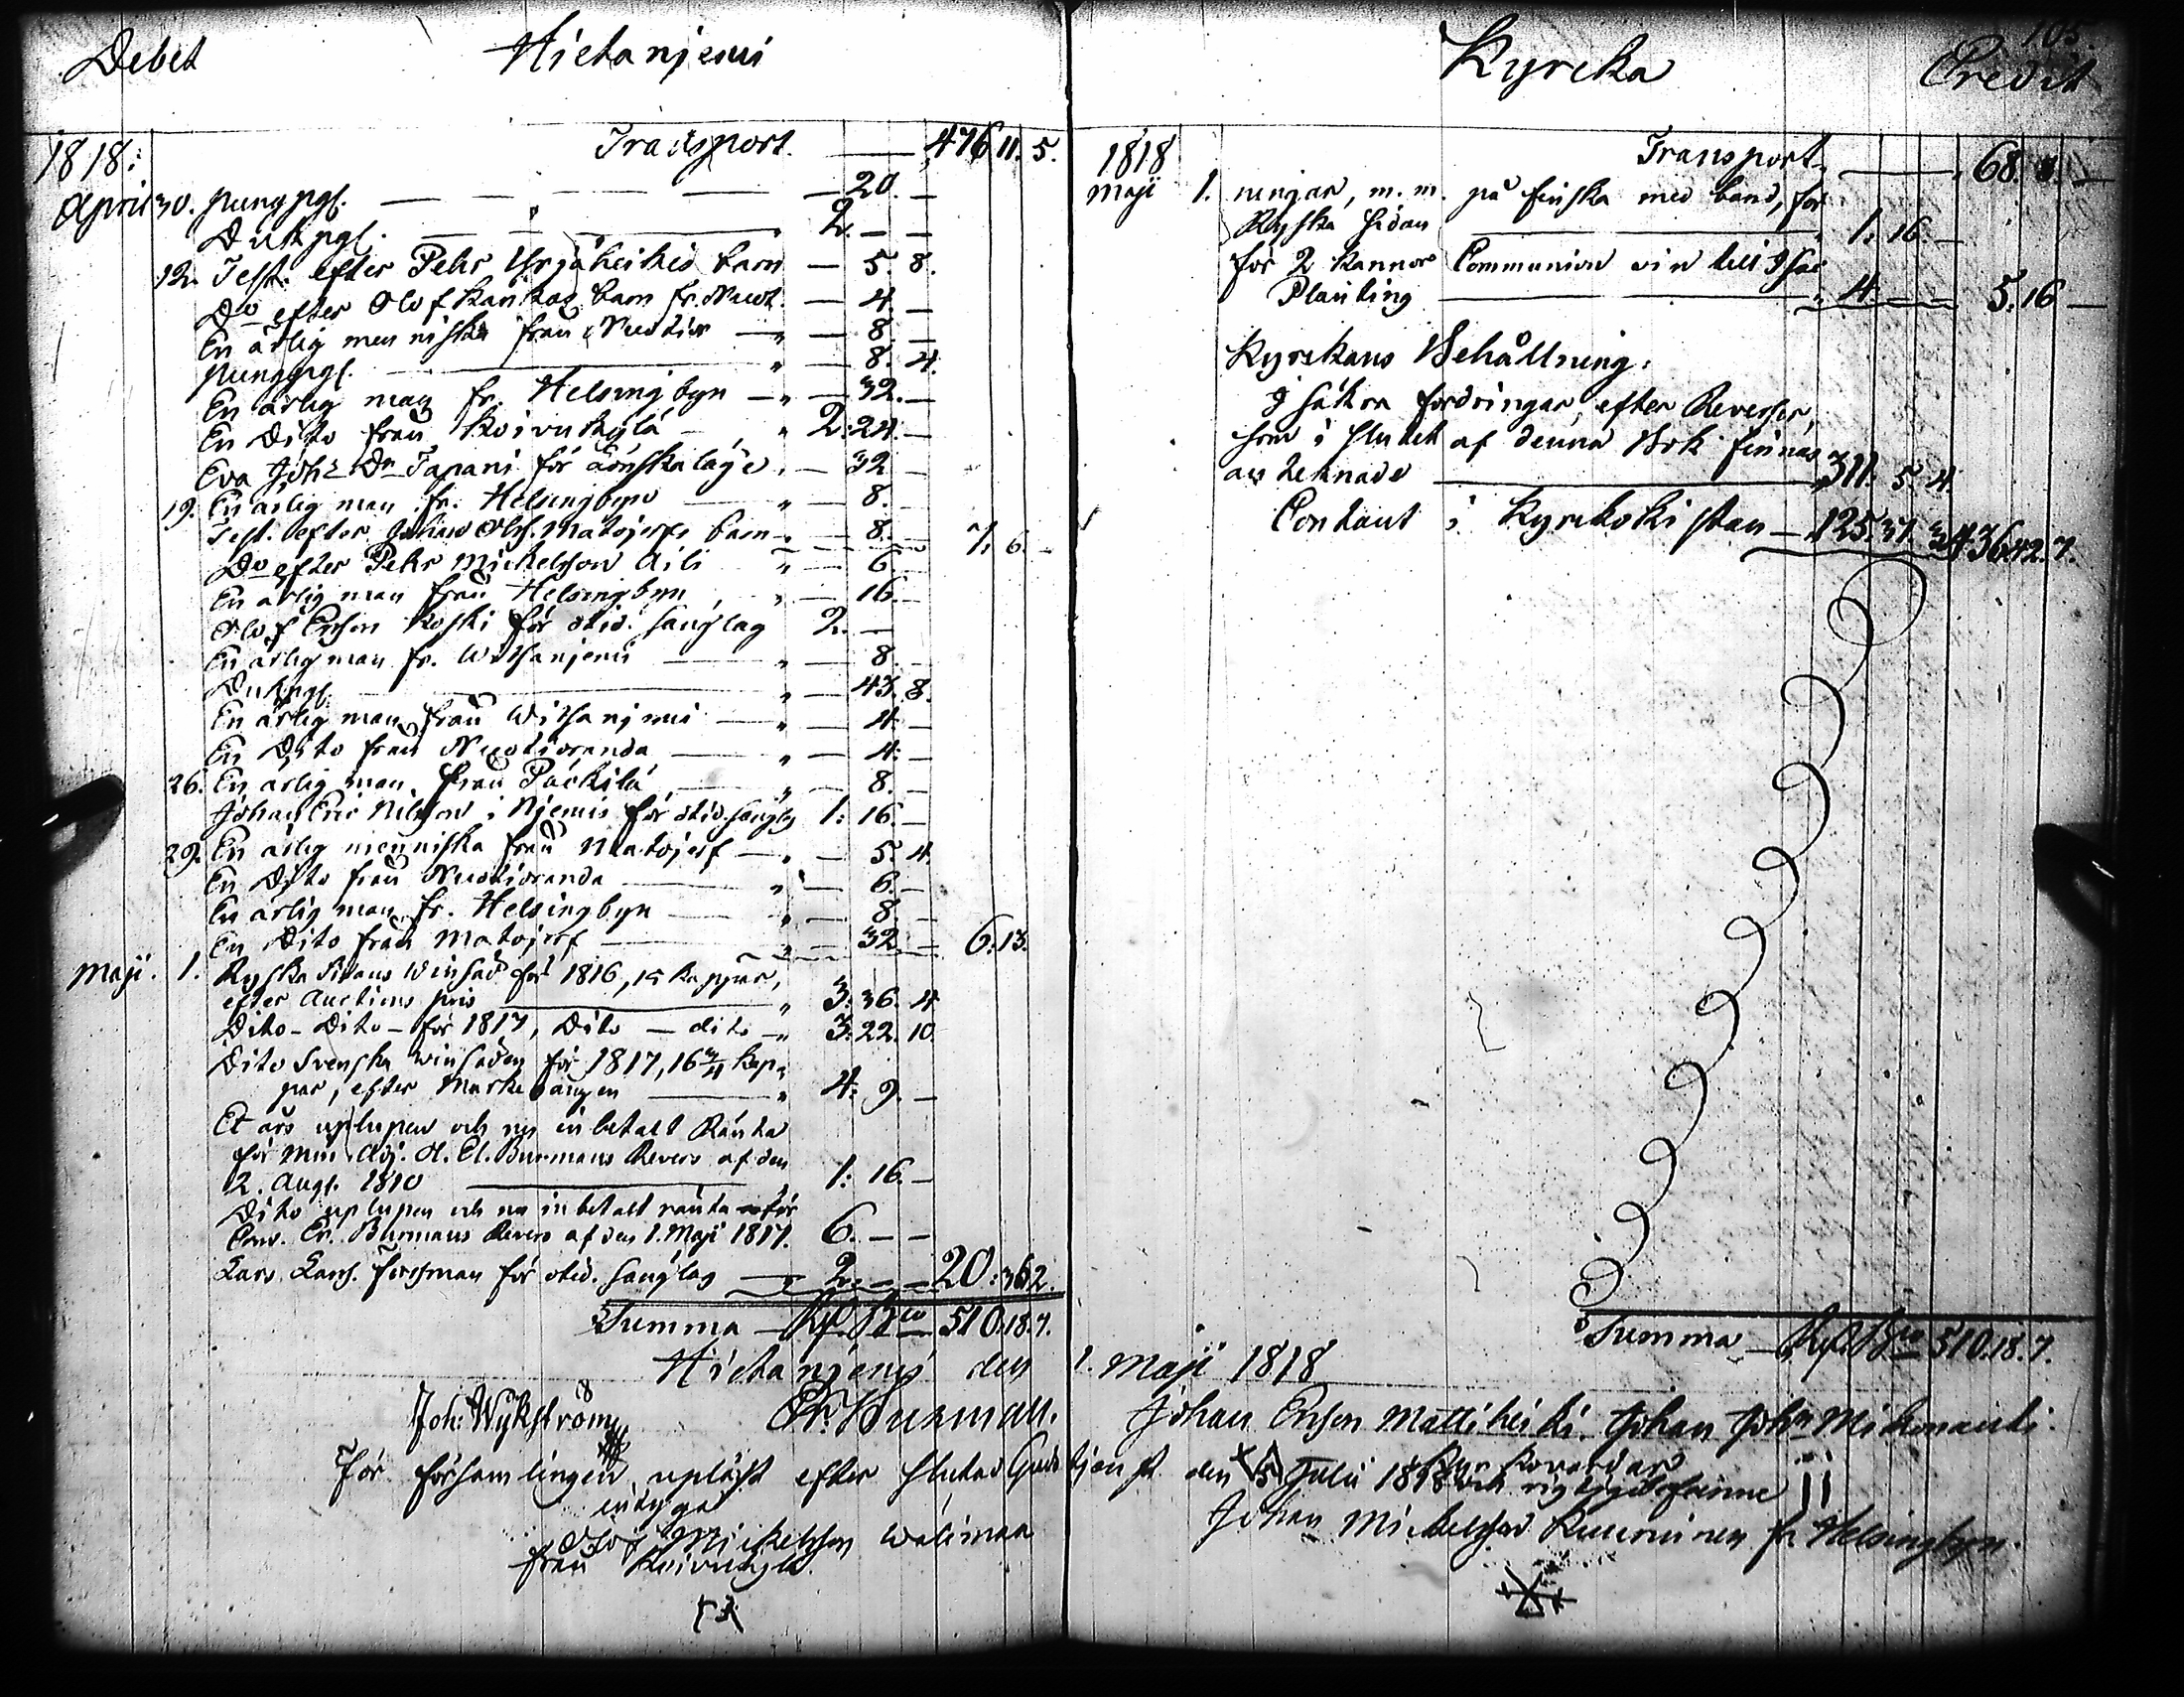 Debet Hietanjemi
1818: Transport. — 476. 11. 5.
April 30. pungpgr. — — — 20. —
Dukpgr. — — 2. — —
12. Test. efter Pehr Yrjäheikis barn — 5. 8.
Do efter Olof Kaukos barn fr. Nuot. — 4. —
En ärlig menniska från Nuotior — 8. —
pungpgr. — 8. 4.
En ärlig man fr. Helsingbyn — 32. —
En Dito från Koivukylä — 2: 24. —
Eva Johs Dr Tapani för — 32 —
19. En ärlig man fr. Helsingbyn — 8. —
Test. efter Johan Olss. Matojerfs barn — 8. — 7. 6. —
Do efter Pehr Mickelsson Aili — 6 —
En ärlig man från Helsingbyn — 16. —
Olof Ersson Koski för otid. sänglag 2. —
En ärlig man fr. Witsanjemi — 8. —
Dukpgr. — 43. 8.
En ärlig man från Witsanjemi — 4. —
En Dito från Nuotioranda — 4. —
26. En ärlig man från Päckilä — 8. —
Johan Eric Nilsson i Njemis för otid. sänglg 1: 16. —
29. En ärlig menniska från Matojerf — 5. 4.
En Dito från Nuotioranda — 6. —
En ärlig man fr. Helsingbyn — 8. —
En Dito från Matojerf — 32. — 6. 13.
Maji. 1. Ryska sidans Winsäd för 1816, 15 kappar,
efter Auctions pris — 3: 36. 4
Dito - Dito - för 1817, Dito — dito — 3: 22. 10.
Dito Svenska winsäden för 1817, 16 3/4 kap-
par, efter Markegången — 4: 9. —
Et års uplupen och nu inbetalt Ränta
för Min. Adj. O. El. Burmans Revers af den
2. Aug. 1810 — 1: 16. —
Dito uplupen och nu inbetalt ränta för
Er. Burmans Revers af den 1. Maji 1817. 6. — —
Lars Lars. Forsman för otid. sänglag — 2. — — 20: 36 2.
Summa — Rd. Bco 510. 18. 7.
Hietanjemi den
Joh: Wykström Er. Burman.
För församlingen upläst efter slutad Guds
intyga
Olof Mickelsson Walimaa
från Koivukylä.
105.
Kyrcka Credit
1818 Transport. — 68. 8. —
Maji 1. ningar, m. m. på finska med band, för
Ryska sidan — 1: 16. —
för 2 Kannor Communion vin
Planting — 4 — 5. 16 —
Kyrckans Behållning:
I säkra fordringar, efter Reverser,
som i slutet af denna Bok finnas
antecknade — 311. 5. 4.
Contant i Kyrckokistan — 125. 37. 3 436. 42. 7.
Summa — Rd. Bco 510. 18. 7.
1. Maji 1818
Johan Ersson Mattiheiki. Johan Johss
Kyrkovärdar
tjenst den 5 Julii 1818 och rigtigt befunne
Johan Mickelsson fr. Helsingbyn.